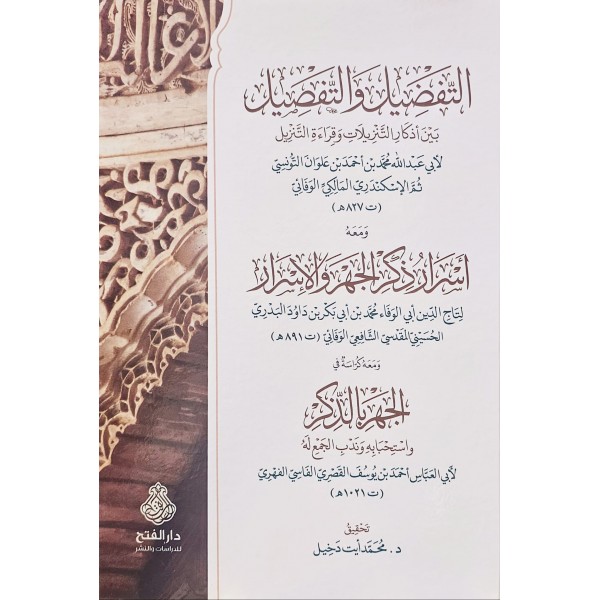 التَّفْضِيل وَالتَّفْصِيل
بَيْنَ أَذْكَارِ التَّنْزِيلَاتِ وَقِرَاءَةِ التَّنْزِيل
لأبي عبد الله محمد بن أحمد بن علوان التونسي
ثم الإسكندري المالكي الوفائي
(ت ٨٢٧هـ)
وَمَعَهُ
أَسْرَارُ ذِكْرِ الجَهْرِ وَالإِسْرَار
لتاج الدين أبي الوفاء محمد بن أبي بكر بن داود البدري
الحسيني المقدسي الشافعي الوفائي (ت ٨٩١هـ)
وَمَعَهُ كُرَّاسَةٌ فِي
الجَهْرِ بِالذِّكْرِ
وَاسْتِحْبَابِهِ وَنَدْبِ الجَمْعِ لَهُ
لأبي العباس أحمد بن يوسف القصري الفاسي الفهري
(ت ١٠٢١هـ)
تَحْقِيقُ
د. محمد أيت دخيل
دار الفتح
للدراسات والنشر